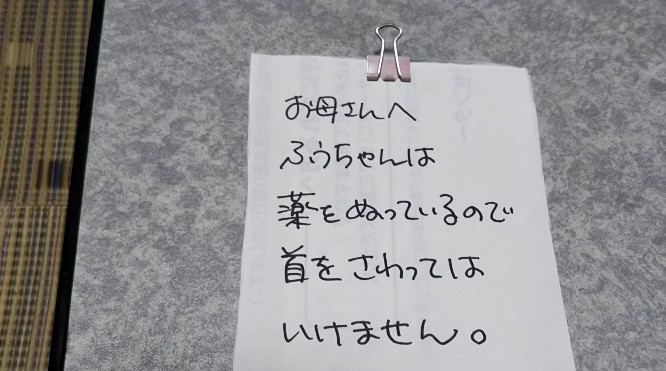 お母さんへ
ふうちゃんは
薬をぬっているので
首をさわっては
いけません。